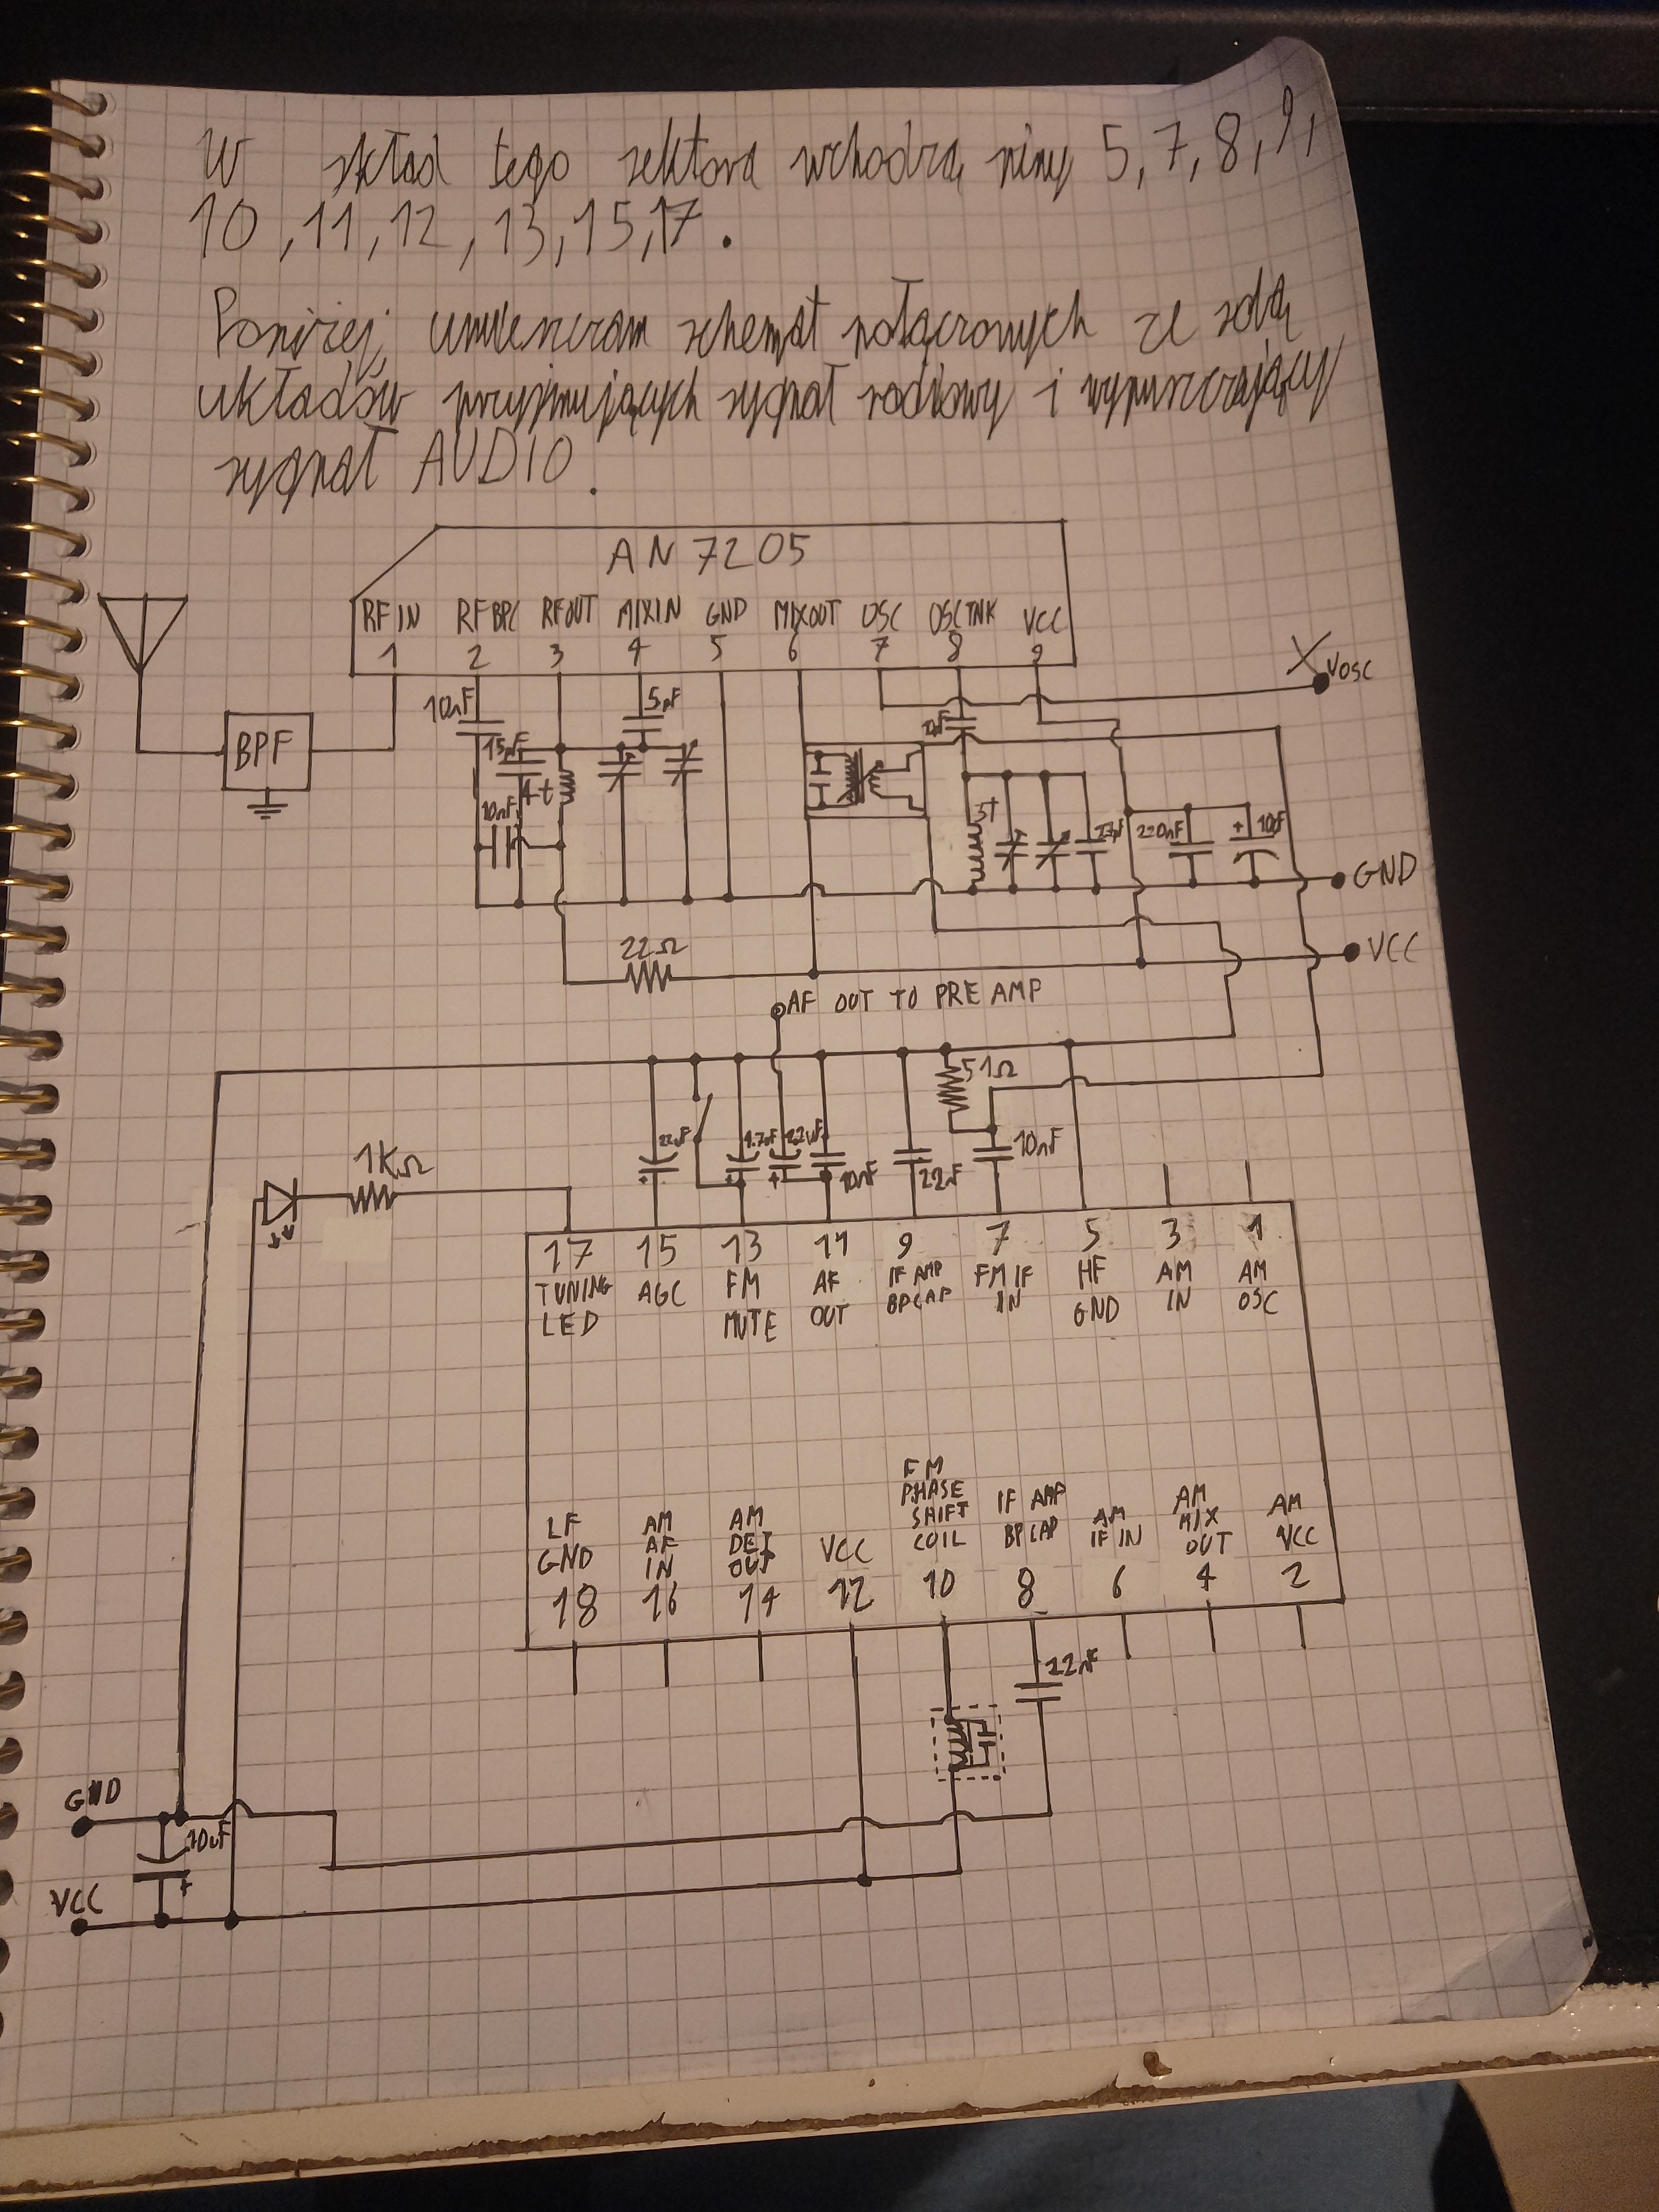 W skład tego sektora wchodzą piny 5, 7, 8, 9,
10, 11, 12, 13, 15, 17.
Poniżej umieszczam schemat połączonych ze sobą
układów przyjmujących sygnał radiowy i wypuszczający
sygnał AUDIO.
AN 7205
RF IN RF BPC RF OUT MIX IN GND MIXOUT OSC OSC TNK VCC
1 2 3 4 5 6 7 8 9
VOSC
10nF 5pF
BPF
15pF
4t
10nF
5T 220nF + 10µF
GND
22Ω
VCC
AF OUT TO PRE AMP
51Ω
22µF 4.7µF 2.2uF 10nF 22nF 10nF
1KΩ
+ + +
17 15 13 11 9 7 5 3 1
TUNING LED
AGC
FM MUTE
AF OUT
IF AMP BPCAP
FM IF IN
HF GND
AM IN
AM OSC
LF GND
AM AF IN
AM DET OUT
VCC
FM PHASE SHIFT COIL
IF AMP BPCAP
AM IF IN
AM MIX OUT
AM VCC
18 16 14 12 10 8 6 4 2
22nF
GND
10uF
+
VCC